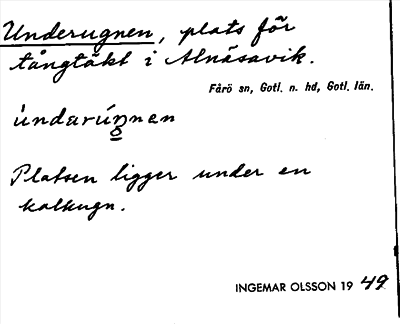 Underugnen, plats för
tångtäkt i Alnäsavik.
Fårö sn, Gotl. n. hd, Gotl. län.
ùndarúŋnen
Platsen ligger under en
kalkugn.
INGEMAR OLSSON 19 49